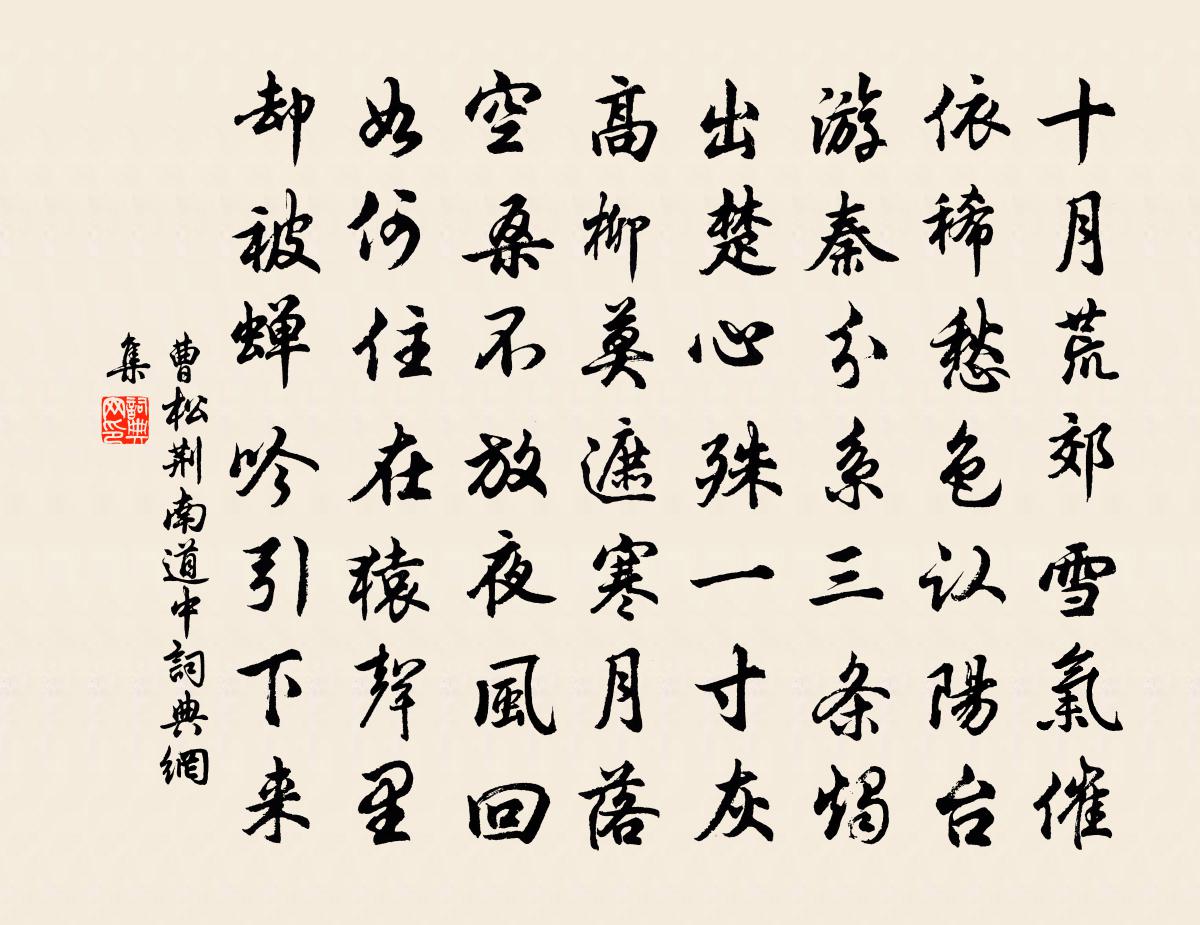 十月荒郊雪氣催
依稀愁色认陽台
游秦分系三条燭
出楚心殊一寸灰
高柳莫遮寒月落
空桑不放夜風回
如何住在猿聲里
却被蝉吟引下来
曹松荆南道中詞典網
集
詞典网印